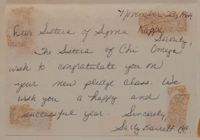 November 20, 19
Dear Sisters of Sigma Kappa
Sorority,
The Sisters of Chi Omega
wish to congratulate you on
your new pledge class. We
wish you a happy and
successful year. Sincerely,
Sally